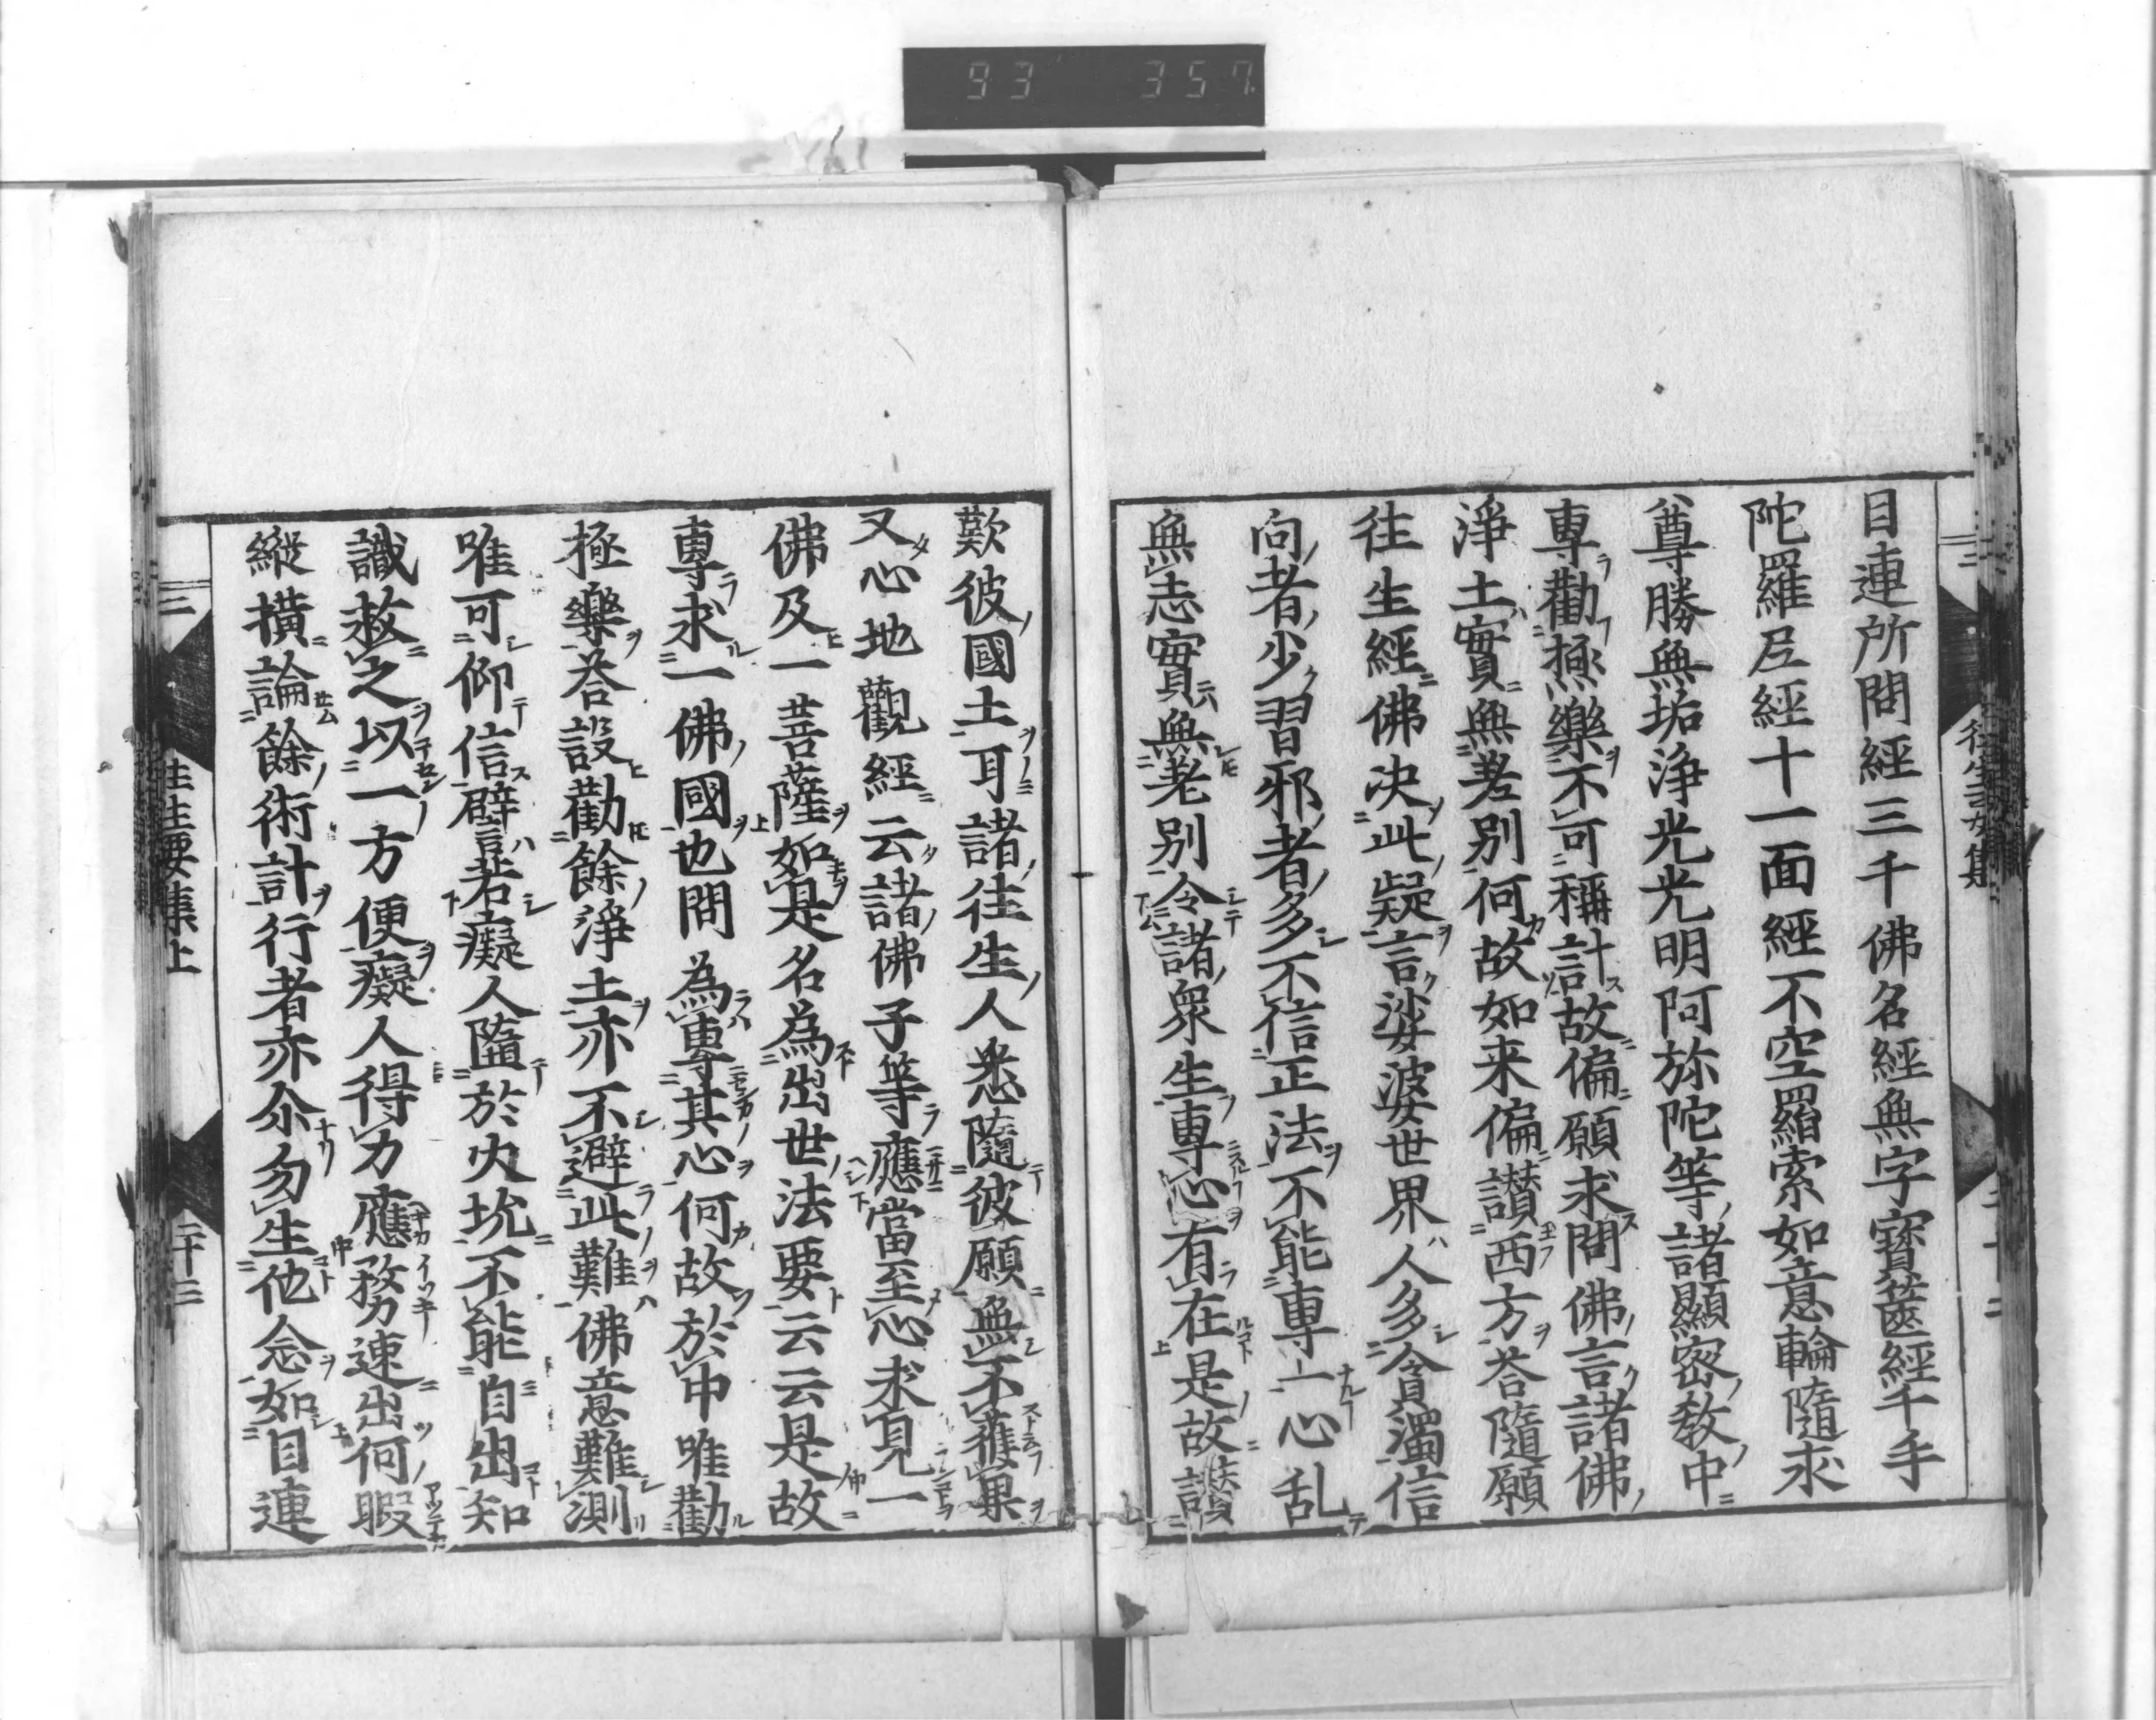 93 357.
目連所問經三千佛名經無字寳篋經千手
陀羅尼經十一面經不空羂索如意輪隨求
尊勝無垢淨光光明阿弥陀等諸顯密教中
專勸極樂不可稱計故偏願求問佛言諸佛
淨土實無差別何故如来偏讃西方荅隨願
往生經佛决此疑言娑婆世界人多貪濁信
向者少習邪者多不信正法不能專一心乱
無志實無差別令諸衆生專心有在是故讃
歎彼國土耳諸往生人悉隨彼願無不獲果
又心地觀經云諸佛子等應當至心求見一
佛及一菩薩如是名為出世法要云云是故
專求一佛國也問為專其心何故於中唯勸
極樂荅設勸餘淨土亦不避此難佛意難測
唯可仰信譬若癡人隨於火坑不能自出知
識救之以一方便癡人得力應務速出何暇
縱横論餘術計行者亦尒勿生他念如目連
二 往生要集上 二十三